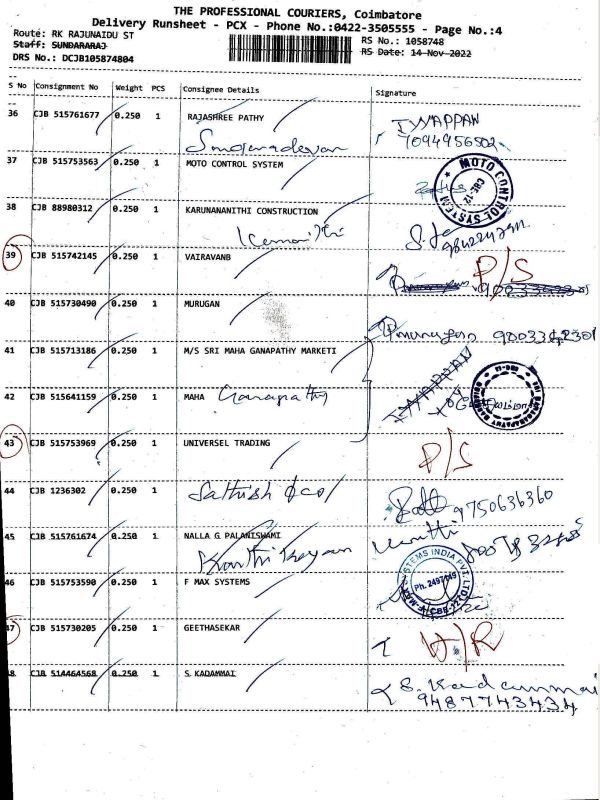 THE PROFESSIONAL COURIERS, Coimbatore
Delivery Runsheet - PCX - Phone No.:0422-3505555 - Page No.:4
Route: RK RAJUNAIDU ST
RS No.: 1058748
Staff: SUNDARARAJ
RS Date: 14 Nov 2022
DRS No.: DCJB105874804
S No Consignment No Weight PCS Consignee Details Signature
36 CJB 515761677 0.250 1 RAJASHREE PATHY IYYAPPAN
7094956502
37 CJB 515753563 0.250 1 MOTO CONTROL SYSTEM
MOTO CONTROL SYSTEM CBE-12
38 CJB 88980312 0.250 1 KARUNANANITHI CONSTRUCTION
39 CJB 515742145 0.250 1 VAIRAVANB P/S
40 CJB 515730490 0.250 1 MURUGAN
41 CJB 515713186 0.250 1 M/S SRI MAHA GANAPATHY MARKETI
IYYAPPAN
42 CJB 515641159 0.250 1 MAHA Ganapathy
43 CJB 515753969 0.250 1 UNIVERSEL TRADING P/S
44 CJB 1236302 0.250 1 Sathish & co/ 9750636360
45 CJB 515761674 0.250 1 NALLA G PALANISWAMI
46 CJB 515753590 0.250 1 F MAX SYSTEMS
F-MAX SYSTEMS INDIA PVT. LTD. Ph. 2497449 CBE-12
47 CJB 515730205 0.250 1 GEETHASEKAR H/R
48 CJB 514464568 0.250 1 S KADAMMAI S. Kadammai
9487743434